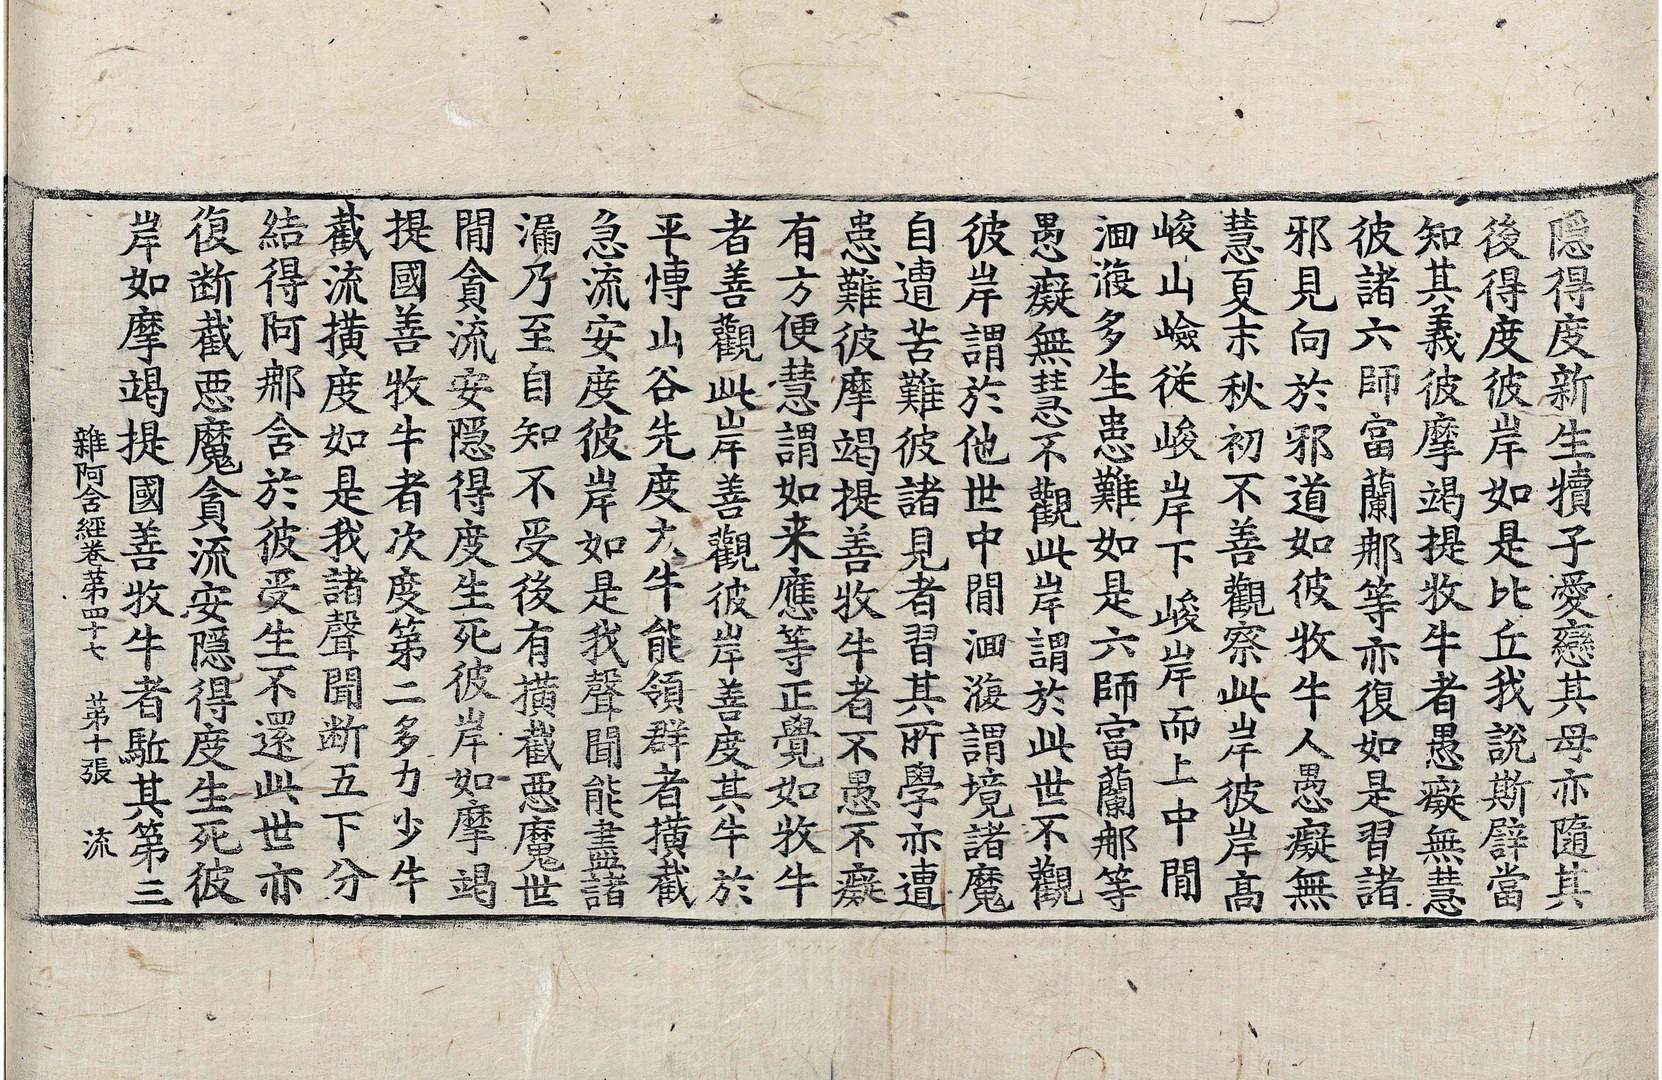 隱得度新生犢子愛戀其母亦隨其
後得度彼岸如是比丘我說斯譬當
知其義彼摩竭提牧牛者愚癡無慧
彼諸六師富蘭那等亦復如是習諸
邪見向於邪道如彼牧牛人愚癡無
慧夏末秋初不善觀察此岸彼岸高
峻山嶮從峻岸下峻岸而上中閒
洄澓多生患難如是六師富蘭那等
愚癡無慧不觀此岸謂於此世不觀
彼岸謂於他世中閒洄澓謂境諸魔
自遭苦難彼諸見者習其所學亦遭
患難彼摩竭提善牧牛者不愚不癡
有方便慧謂如来應等正覺如牧牛
者善觀此岸善觀彼岸善度其牛於
平慱山谷先度大牛能領群者橫截
急流安度彼岸如是我聲聞能盡諸
漏乃至自知不受後有橫截惡魔世
閒貪流安隱得度生死彼岸如摩竭
提國善牧牛者次度第二多力少牛
截流橫度如是我諸聲聞断五下分
結得阿那含於彼受生不還此世亦
復断截惡魔貪流安隱得度生死彼
岸如摩竭提國善牧牛者駈其第三
雜阿含經卷第四十七 第十張 流